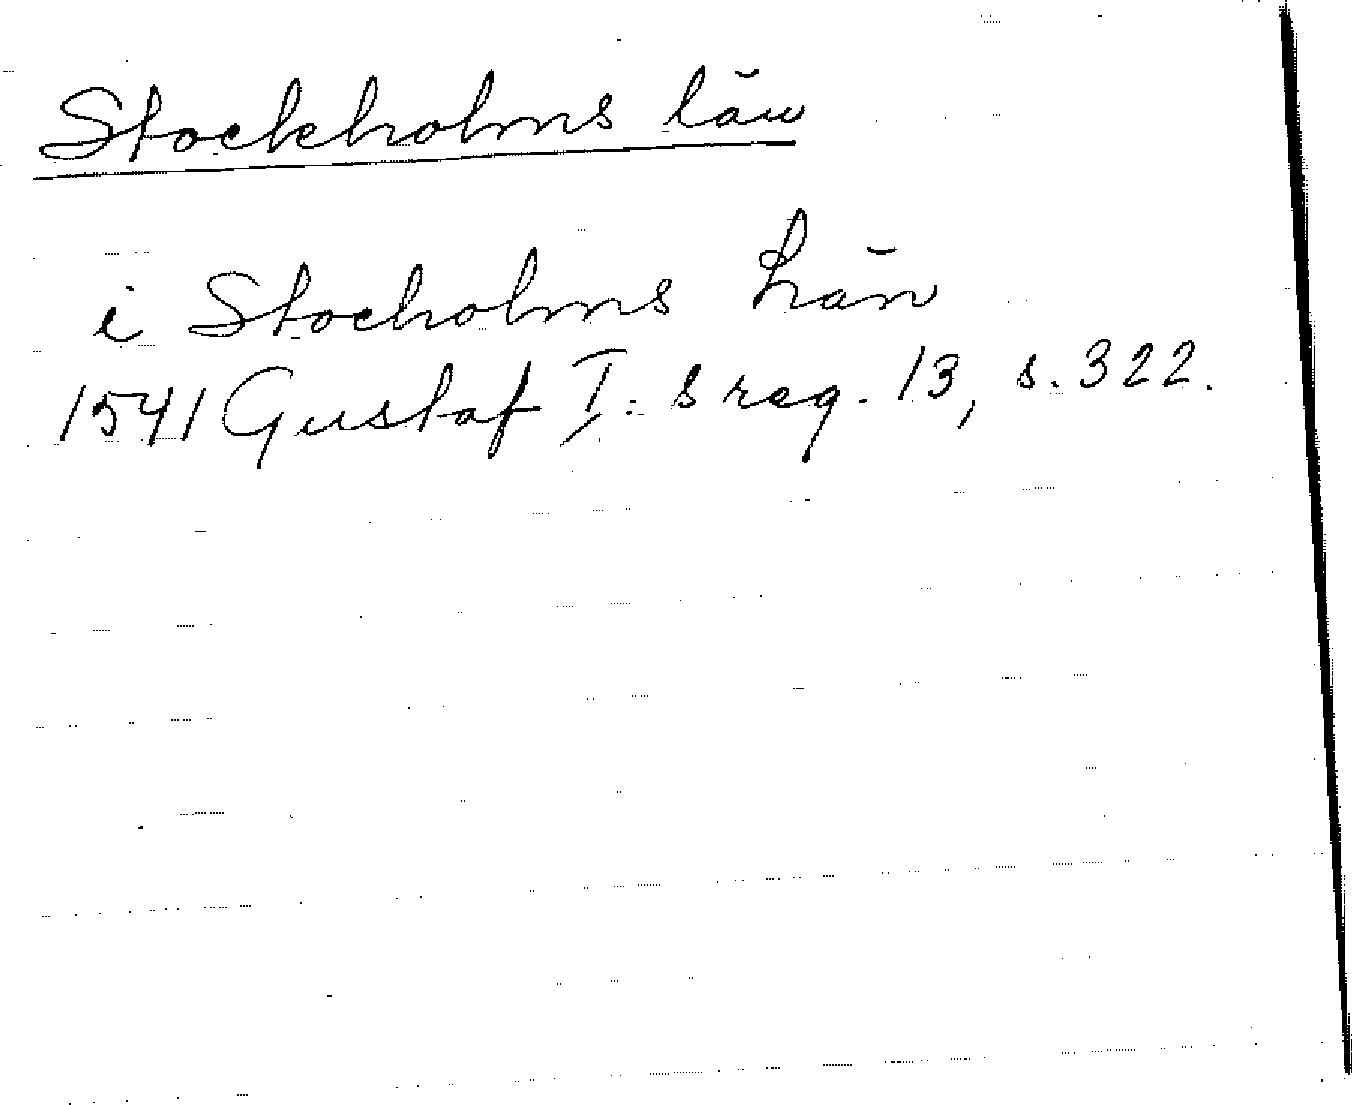 Stockholms län
i Stocholms Län
1541 Gustaf I:s reg. 13, s. 322.